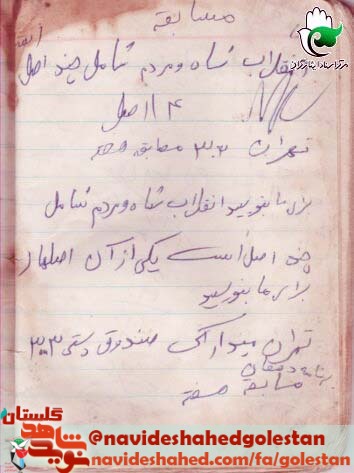 مسابقه
انقلاب شاه و مردم شامل چند اصل
۱۴ اصل
تهران ۳۰۳ مسابقه
برای ما بنویسید انقلاب شاه و مردم شامل
چند اصل است یکی از آن اصلها را
برای ما بنویسید
تهران میدان ارک صندوق پستی ۳۰۳
برنامه دهقان
مسابقه هفته
مرکز اسناد ایثارگران
نوید شاهد گلستان
@navideshahedgolestan
navideshahed.com/fa/golestan